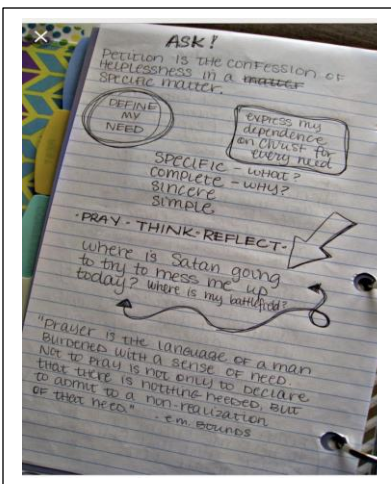 ASK!
PETITION IS THE CONFESSION OF
HELPLESSNESS IN A matter
SPECIFIC MATTER.
DEFINE
MY
NEED
express my
dependence
on Christ for
every need
SPECIFIC - WHAT?
COMPLETE - WHY?
SINCERE
SIMPLE.
·PRAY·THINK·REFLECT·
where is Satan going
to try to mess me up
today? where is my battlefield?
"Prayer is the language of a man
burdened with a sense of need.
Not to pray is not only to declare
that there is nothing needed, but
to admit to a non-realization
of that need."
- e.m. BOUNDS